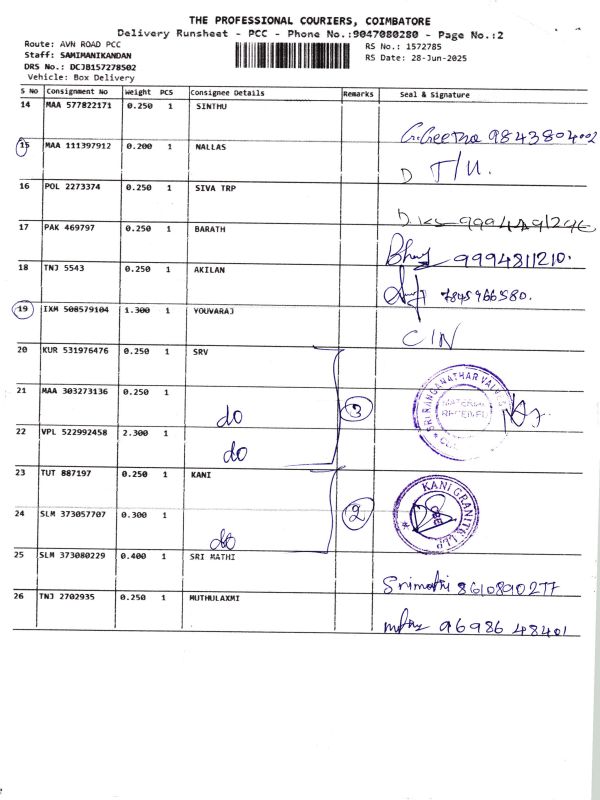 THE PROFESSIONAL COURIERS, COIMBATORE
Delivery Runsheet - PCC - Phone No.:9047080280 - Page No.:2
Route: AVN ROAD PCC
Staff: SAMIMANIKANDAN
DRS No.: DCJB157278502
Vehicle: Box Delivery
RS No.: 1572785
RS Date: 28-Jun-2025
S No Consignment No Weight PCS Consignee Details Remarks Seal & Signature
14 MAA 577822171 0.250 1 SINTHU
G.Geetha 9843804002
15 MAA 111397912 0.200 1 NALLAS
D T/U.
16 POL 2273374 0.250 1 SIVA TRP
17 PAK 469797 0.250 1 BARATH
9994811210.
18 TNJ 5543 0.250 1 AKILAN
7845966580.
19 IXM 508579104 1.300 1 YOUVARAJ
C/N
20 KUR 531976476 0.250 1 SRV
21 MAA 303273136 0.250 1
do
3
SRI RANGANATHAR
MATERIAL RECEIVED
22 VPL 522992458 2.300 1
do
23 TUT 887197 0.250 1 KANI
24 SLM 373057707 0.300 1
do
2
KANI GRANITE LLP
25 SLM 373080229 0.400 1 SRI MATHI
Srimathi 8610890277
26 TNJ 2702935 0.250 1 MUTHULAXMI
96986 48401